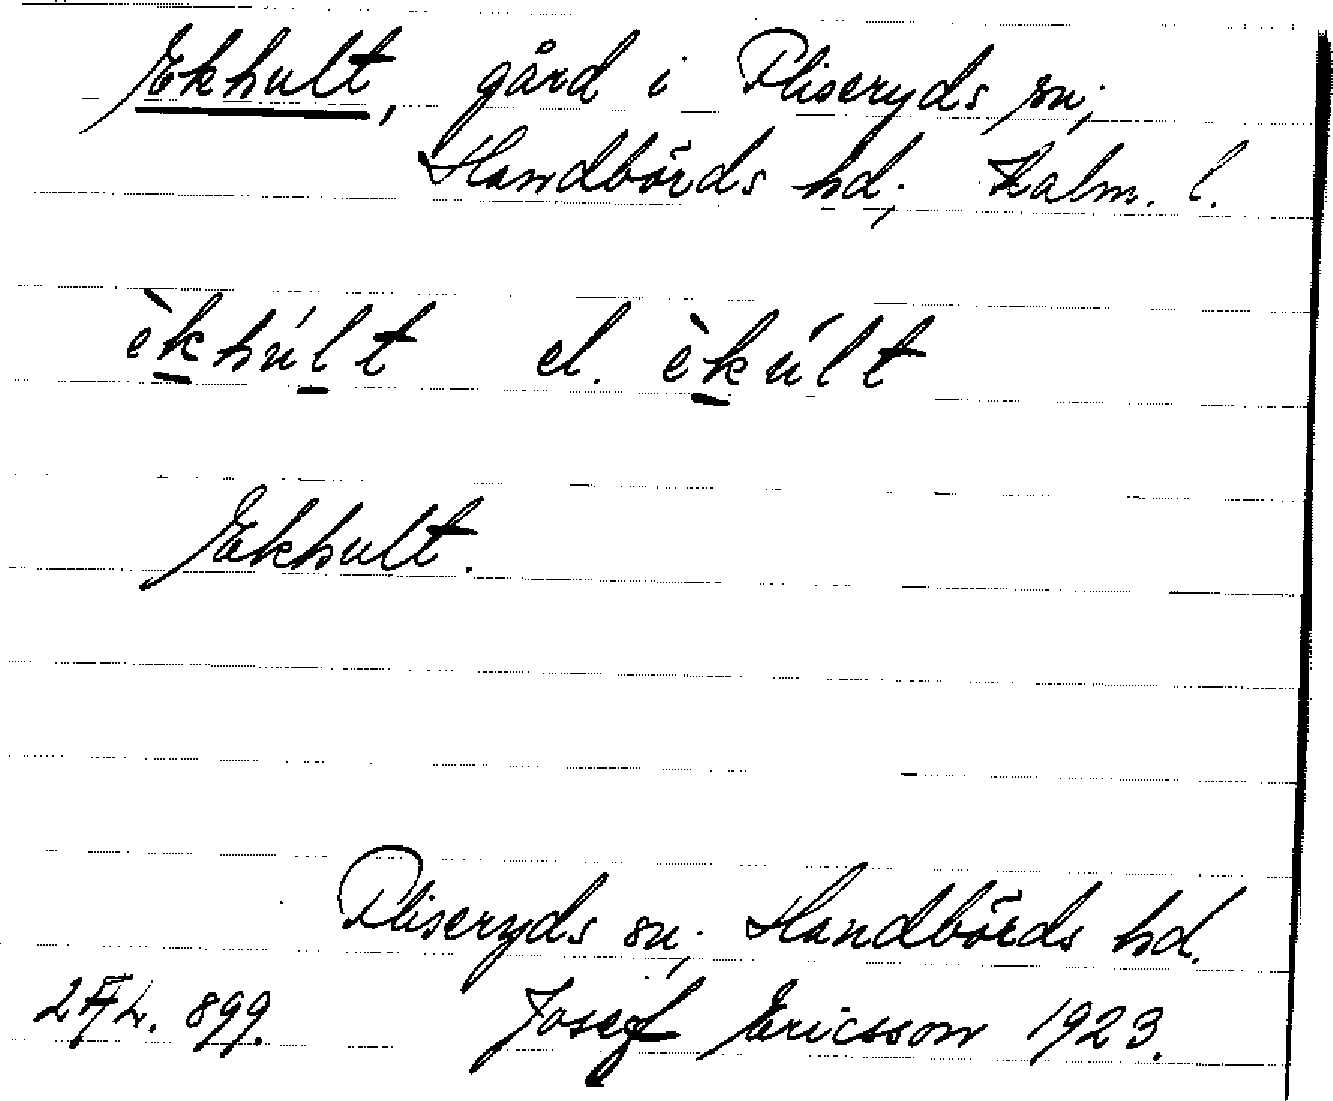 Ekhult, gård i Fliseryds sn;
Handbörds hd; Kalm. l.
èkhúlt el. èkúlt
Ekhult.
Fliseryds sn; Handbörds hd.
899. Josef Ericsson 1923.